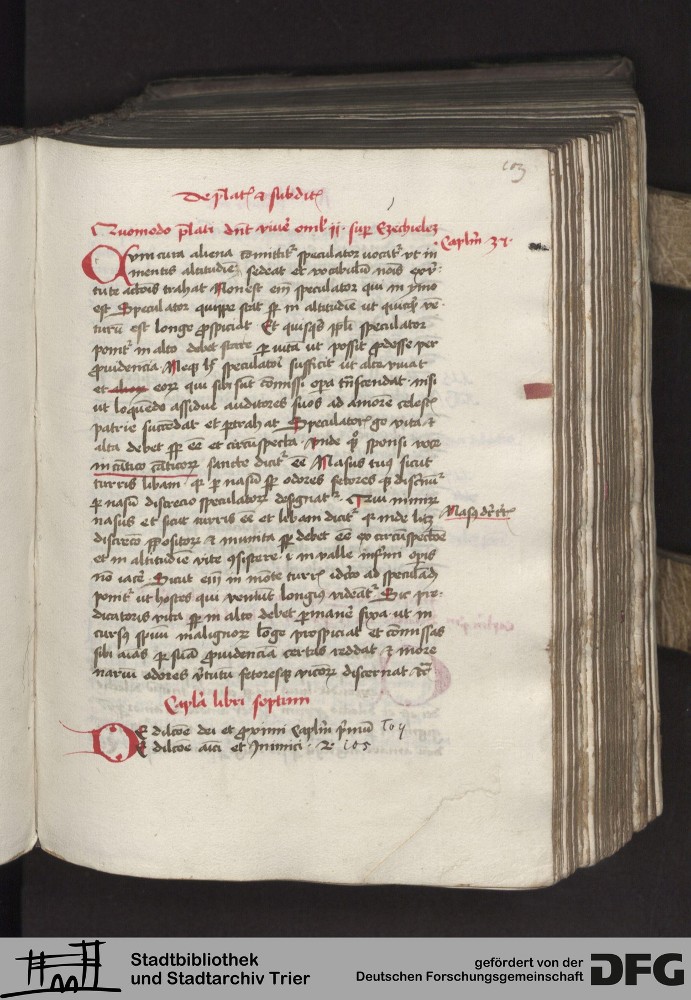 103
De plat' & subdit'
Quomodo plati dnt viuē omel' ii. sup Ezechielez
Caplm 31.
Cum cura aliena comittit' speculator vocat' vt in
mentis altitudiē sedeat et vocabulū nois ex
tute actōis trahat Non est eni speculator qui in ymo
est Speculator quippe stat sp in altitudiē ut quicq ve
turū est longe pspiciat Et quisqs ppli speculator
ponit' in alto debet stare p vitā ut possit pdesse per
puidencia Neqs speculatori sufficit ut alte viuat
et eorz qui sibi sut comissi opa nisi
ut loquēdo assidue auditores suos ad amorē celest'
patrie succedat et ptrahat Speculatoris go vita &
alta debet sp eē et circuspecta Vnde sponsi voce
in cātico cāticorz sancte dicit' eē Nasus tuus sicut
turris libani q' p nasū sp odores fetores qs discnim'
p nasū discrecio speculatorz designat' Qui nimirz
nasus et sicut turris eē et libani dicit' q' inde
Nasus
discreco ppositorz & munita sp debet eē circuspectōe
et in altitudiē vite sistere i in valle infimi opis
nō iacē Sicut eni in mōte turr' idcco ad speculādū
ponit' ut hostes qui veniut longius videāt' Sic pre
dicatoris vita sp in alto debet pmanē fixa ut in
cursus spuū malignorz lōge prospiciat et comissas
sibi aias p suā puidencia certas reddat & more
nariū odores vtutu fetoresqs vicorz discernat &c
Capla libri septimi
De dilcōe dei et proximi Caplm pmū 104
De dilcōe aici et Inimici 2m 105
Stadtbibliothek
und Stadtarchiv Trier
gefördert von der
Deutschen Forschungsgemeinschaft
DFG